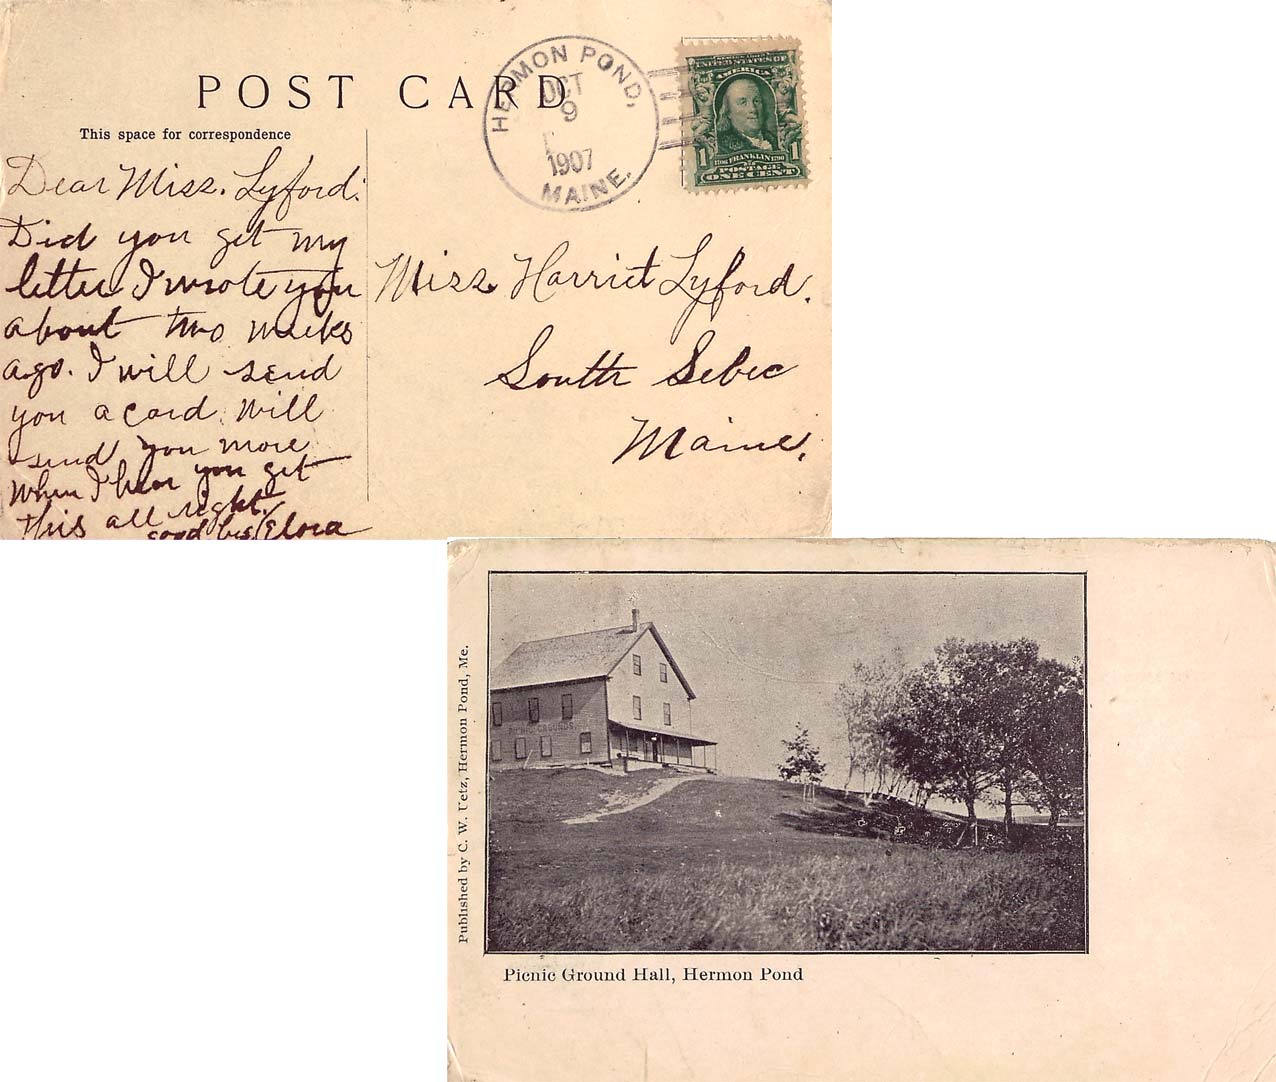 POST CARD
This space for correspondence
HERMON POND,
OCT
9
1907
MAINE.
UNITED STATES OF
AMERICA
1706 FRANKLIN 1790
1 1
POSTAGE
ONE CENT
Dear Miss. Lyford:
Did you get my
letter I wrote you
about two weeks
ago. I will send
you a card. Will
send you more
when I hear you get
this all right.
good bye Elora
Miss Harriet Lyford.
South Sebec
Maine.
PICNIC GROUNDS
Published by C. W. Uetz, Hermon Pond, Me.
Picnic Ground Hall, Hermon Pond